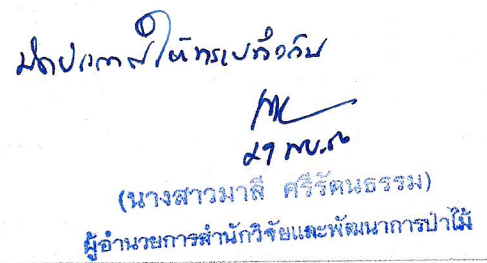 ปิดประกาศให้ทราบทั่วกัน
(นางสาวมาลี ศรีรัตนธรรม)
ผู้อำนวยการสำนักวิจัยและพัฒนาการป่าไม้